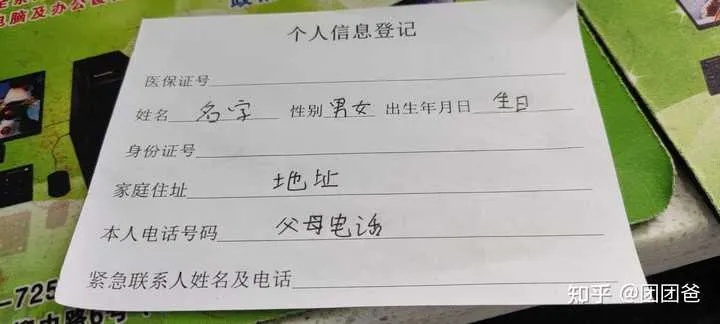 电脑及办公设
个人信息登记
医保证号
姓名 名字 性别 男女 出生年月日 生日
身份证号
家庭住址 地址
本人电话号码 父母电话
紧急联系人姓名及电话
-725
知乎 @团团爸